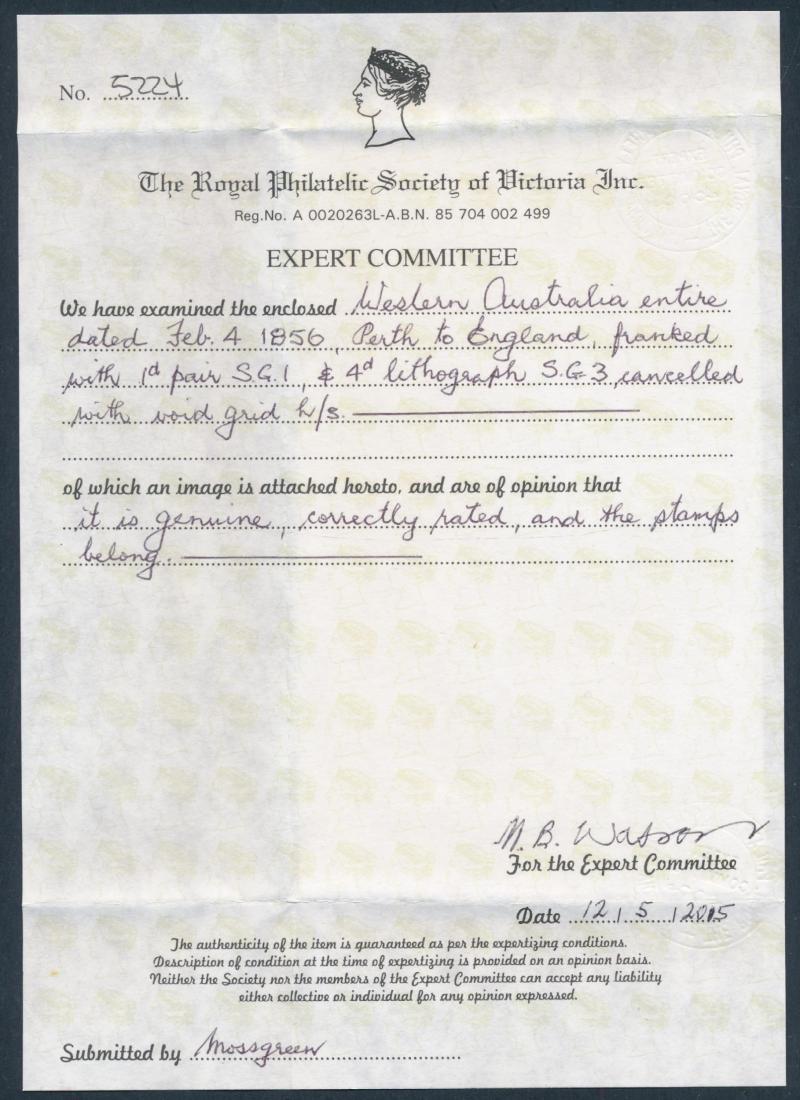 No. 5224
The Royal Philatelic Society of Victoria Inc.
Reg.No. A 0020263L-A.B.N. 85 704 002 499
EXPERT COMMITTEE
We have examined the enclosed Western Australia entire
dated Feb. 4 1856, Perth to England, franked
with 1d pair S.G.1, & 4d lithograph S.G.3, cancelled
with void grid h/s.
of which an image is attached hereto, and are of opinion that
it is genuine, correctly rated, and the stamps
belong.
M. B. Watson
For the Expert Committee
Date 12/5/2015
The authenticity of the item is guaranteed as per the expertizing conditions.
Description of condition at the time of expertizing is provided on an opinion basis.
Neither the Society nor the members of the Expert Committee can accept any liability
either collective or individual for any opinion expressed.
Submitted by Mossgreen